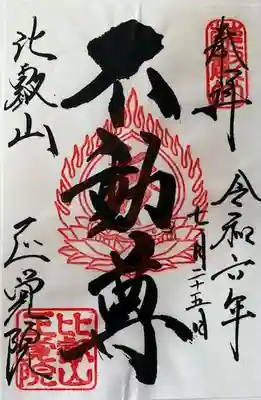 奉拝
令和六年
七月二十五日
不動尊
比叡山
正覚院
比叡山
正覚院